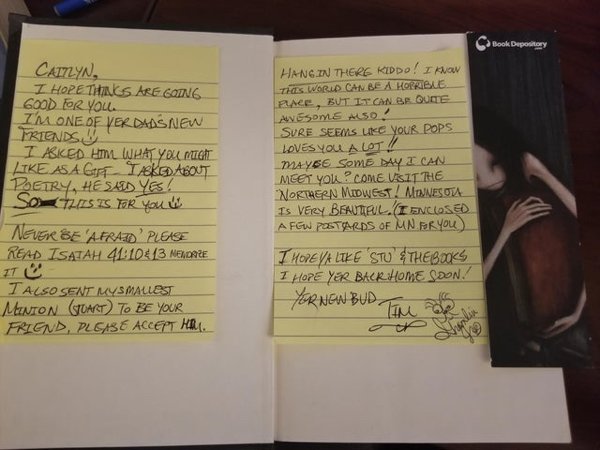 CAITLYN,
I HOPE THINGS ARE GOING
GOOD FOR YOU.
I'M ONE OF YER DAD'S NEW
FRIENDS
I ASKED HIM WHAT YOU MIGHT
LIKE AS A GIFT - I ASKED ABOUT
POETRY, HE SAID YES!
SO THIS IS FOR YOU
NEVER BE 'AFRAID' PLEASE
READ ISAIAH 41:10 & 13 MEMORIZE
IT
I ALSO SENT MY SMALLEST
MINION (STUART) TO BE YOUR
FRIEND, PLEASE ACCEPT HIM.
HANG IN THERE KIDDO! I KNOW
THIS WORLD CAN BE A HORRIBLE
PLACE, BUT IT CAN BE QUITE
AWESOME ALSO!
SURE SEEMS LIKE YOUR POPS
LOVES YOU A LOT!!
MAYBE SOME DAY I CAN
MEET YOU? COME VISIT THE
NORTHERN MIDWEST! MINNESOTA
IS VERY BEAUTIFUL! (I ENCLOSED
A FEW POSTCARDS OF MN FOR YOU)
I HOPE YA LIKE 'STU' & THE BOOKS
I HOPE YER BACK HOME SOON!
YER NEW BUD
TIM
Book Depository
.com